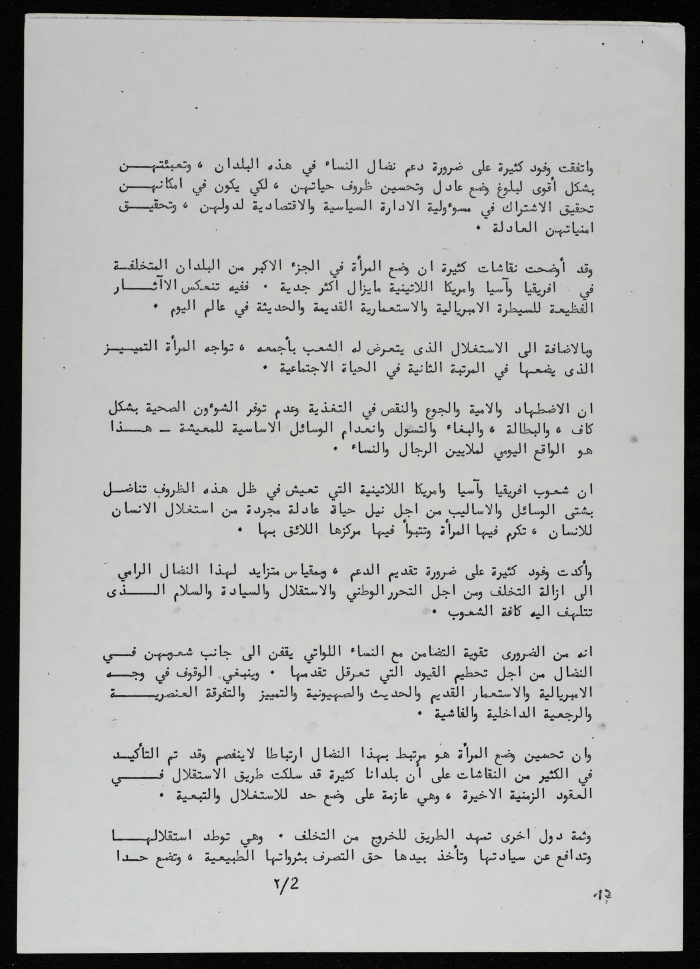 واتفقت وفود كثيرة على ضرورة دعم نضال النساء في هذه البلدان ، وتعبئتهن
بشكل أقوى لبلوغ وضع عادل وتحسين ظروف حياتهن ، لكي يكون في امكانهن
تحقيق الاشتراك في مسوءولية الادارة السياسية والاقتصادية لدولهن ، وتحقيق
امنياتهن العادلة ٠
وقد أوضحت نقاشات كثيرة ان وضع المرأة في الجزء الاكبر من البلدان المتخلفة
في افريقيا وآسيا وامريكا اللاتينية مايزال اكثر جدية ٠ ففيه تنعكس الاآثار
الفظيعة للسيطرة الامبريالية والاستعمارية القديمة والحديثة في عالم اليوم ٠
وبالاضافة الى الاستغلال الذى يتعرض له الشعب بأجمعه ، تواجه المرأة التمييز
الذى يضعها في المرتبة الثانية في الحياة الاجتماعية ٠
ان الاضطهاد والامية والجوع والنقص في التغذية وعدم توفر الشوءون الصحية بشكل
كاف ، والبطالة ، والبغاء والتسول وانعدام الوسائل الاساسية للمعيشة ــ هــذا
هو الواقع اليومي لملايين الرجال والنساء ٠
ان شعوب افريقيا وآسيا وامريكا اللاتينية التي تعيش في ظل هذه الظروف تناضل
بشتى الوسائل والاساليب من اجل نيل حياة عادلة مجردة من استغلال الانسان
للانسان ، تكرم فيها المرأة وتتبوأ فيها مركزها اللائق بها ٠
وأكدت وفود كثيرة على ضرورة تقديم الدعم ، وبمقياس متزايد لهذا النضال الرامي
الى ازالة التخلف ومن اجل التحرر الوطني والاستقلال والسيادة والسلام الــذى
تتلهف اليه كافة الشعوب ٠
انه من الضرورى تقوية التضامن مع النساء اللواتي يقفن الى جانب شعوبهن فــي
النضال من اجل تحطيم القيود التي تعرقل تقدمها ٠ وينبغي الوقوف في وجــه
الامبريالية والاستعمار القديم والحديث والصهيونية والتمييز والتفرقة العنصريــة
والرجعية الداخلية والفاشية ٠
وان تحسين وضع المرأة هو مرتبط بهذا النضال ارتباطا لاينفصم وقد تم التأكيد
في الكثير من النقاشات على أن بلدانا كثيرة قد سلكت طريق الاستقلال فــي
العقود الزمنية الاخيرة ، وهي عازمة على وضع حد للاستغلال والتبعية ٠
وثمة دول اخرى تمهد الطريق للخروج من التخلف ٠ وهي توطد استقلالهــا
وتدافع عن سيادتها وتأخذ بيدها حق التصرف بثرواتها الطبيعية ، وتضع حــدا
٢/2
17